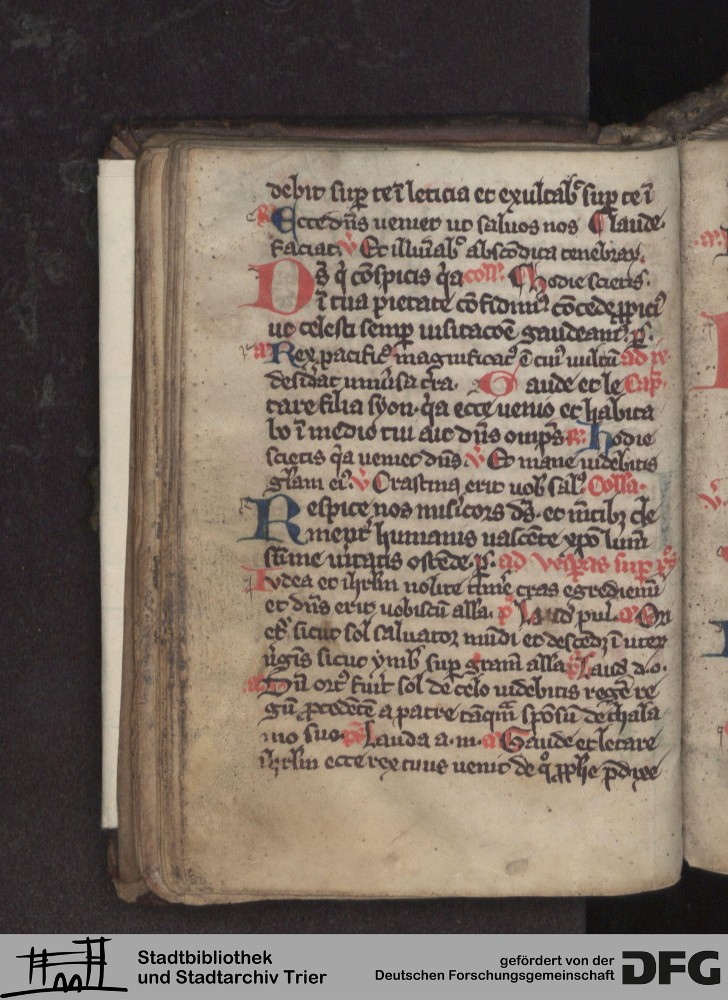 debit sup te i leticia et exultabᵗ sup te i
R Ecce dn̄s ueniet ut saluos nos Claude.
faciat. v̄ Et illuīabᵗ abscōdita tenebraꝝ.
Ds̄ q̇ cōspicis q̇a coll̄. Hodie scietis.
ī tua pietate cōfidimꝰ cōcede ꝓpiciꝰ
ut celesti semꝑ uisitacōe gaudeamꝰ. p̄.
a Rex pacificꝰ magnificatꝰ ē cuiꝰ uultū ad ye
desid̾at uniu̾sa t̾ra. Gaude et le Cap̄.
tare filia syon. q̇a ecce uenio et habita
bo ī medio tui ait dn̄s omp̄s R Hodie
scietis q̇a ueniet dn̄s v̄ Et mane uidebitis
gl̄am eiꝰ. v̄ Crastina erit uob̾ salꝰ. Colla.
Respice nos mis̾icors ds̄. et mētibꝫ cle
ment̾ humanis nascēte xpō lumī
sūme u̾itatis ostēde. p̄. ad vesp̾as sup p̄s
Iudea et ih̾rlm nolite tīme cras egrediemī
et dn̄s erit uobiscū all̄a. p̄ Laud̾ pu̾i. a Ori
et᷑ sicut sol saluator mūdi et descēdꝫ ī uter
u̾gīs sicut ymb̾ sup gramē all̄a. p̄ Laud d. o.
a Dū ortꝰ fuit᷑ sol de celo uidebitis regē re
gū ꝓcedētē a patre tāqm̄ spōsū de thala
mo suo. p̄s Lauda a. m. a Gaude et letare
ih̾rlm ecce rex tuus uenit de q̊ ꝓph̄e p̄dixe
Stadtbibliothek
und Stadtarchiv Trier
gefördert von der
Deutschen Forschungsgemeinschaft
DFG